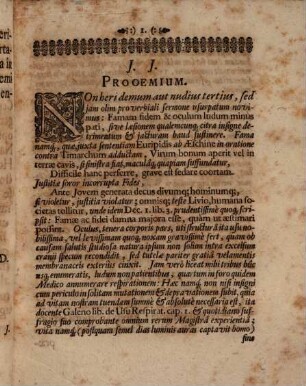 1.
J. J.
PROOEMIUM.
NOn heri demum aut nudius tertius, sed
jam olim proverbiali sermone usurpatum novi-
mus: Famam fidem & oculum ludum minis
pati, sive læsionem qualemcunq; citra insigne de-
trimentum & jacturam haud sustinere. Fama
namq;, quæ juxta sententiam Euripidis ab Æschine in oratione
contra Timarchum adductam, Virum bonum aperit vel in
terræ cavis, si sinistra fiat, maculâq; quapiam suffundatur,
Difficile hanc perferre, grave est sedare coortam.
Justitiæ soror incorrupta Fides,
Ante Jovem generata decus divumq; hominumq;
si violetur, justitia violatur; omnisq; teste Livio, humana so-
cietas tollitur, unde idem Dec. 1. lib. 3. prudentissimè quoq; scri-
psit: Famæ ac fidei damna majora esse, quàm ut æstimari
possent. Oculus, tenera corporis pars, uti structurâ ita usu no-
bilissima, vel levissimam quoq; noxam gravissimè fert, quam ob
causam salutis studiosa natura ipsum non solùm intra excelsum
cranii specum recondidit, sed tutelæ pariter gratiâ velamentis
membranaceis extrinsecus cinxit. Jam verò liceat mihi tribus his-
ce, enumeratis, ludum non patientibus, quartum in foro quidem
Medico annumerare respirationem: Hæc namq; non nisi insigni
cum periculo insolitam mutationem & depravationem subit, quin
ad vitam nostram tuendam summè & absolutè necessaria est, ita
docente Galeno lib. de Usu Respirat. cap. 1. & quotidiano suf-
fragio suo comprobante omnium rerum Magistrâ experientiâ;
vita namq; (postquam semel dias luminis auras captavit homo)
sine